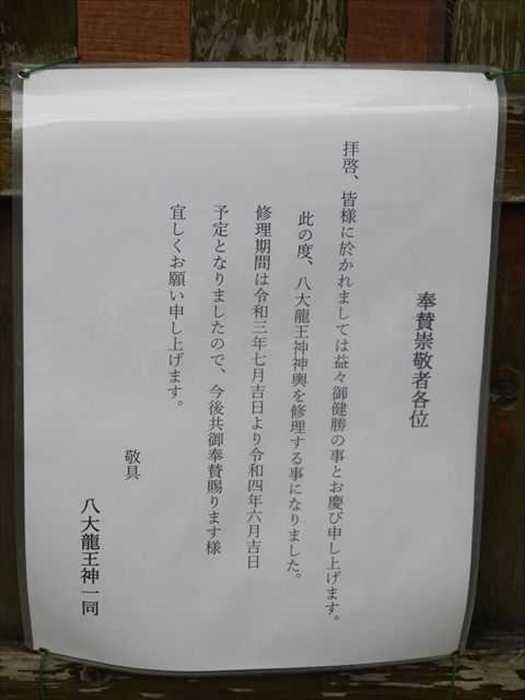 奉賛崇敬者各位
拝啓、皆様に於かれましては益々御健勝の事とお慶び申し上げます。
此の度、八大龍王神神輿を修理する事になりました。
修理期間は令和三年七月吉日より令和四年六月吉日
予定となりましたので、今後共御奉賛賜ります様
宜しくお願い申し上げます。
敬具
八大龍王神一同